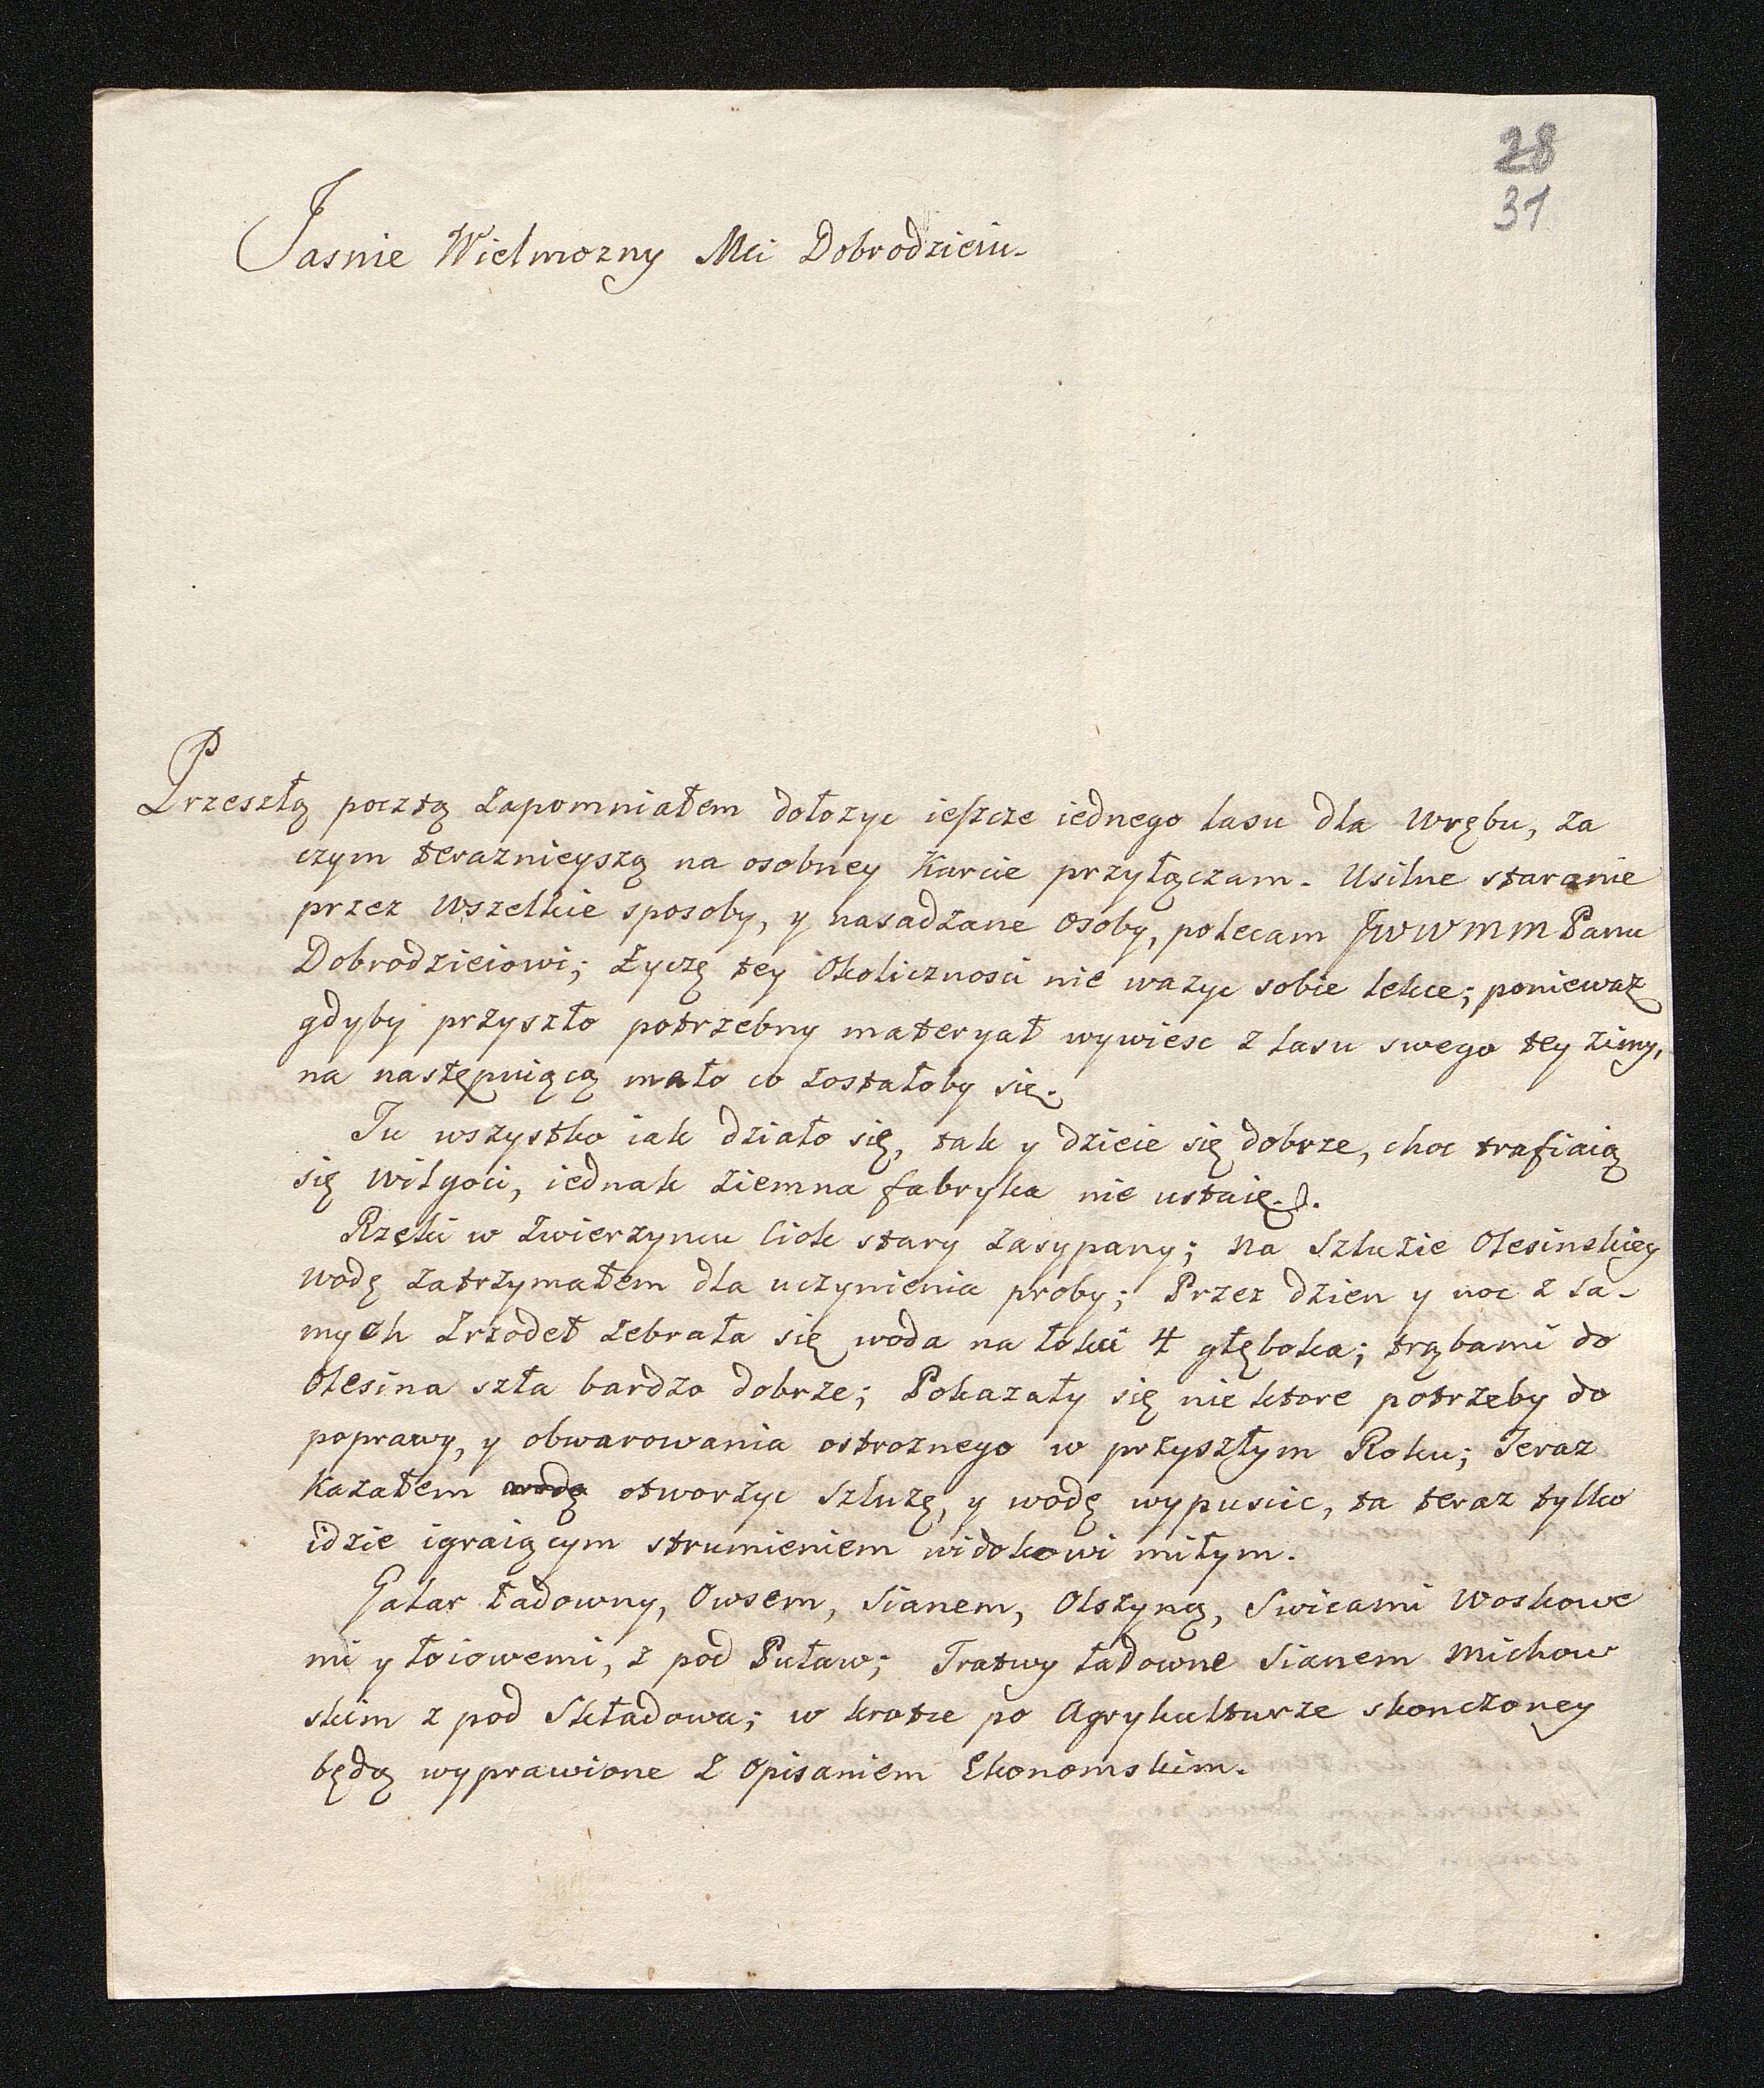 28
31
Jasnie Wielmozny Mci Dobrodzieiu.
Przeszłą pocztą zapomniałem dołozyc ieszcze iednego lasu dla wrębu, za
czym teraznieyszą na osobney karcie przyłączam. Usilne staranie
przez wszelkie sposoby, y nasadzane osoby, polecam JWWMM Panu
Dobrodzieiowi; zyczę tey okolicznosci nie wazyc sobie lekce; poniewaz
gdyby przyszło potrzebny materyał wywiesc z lasu swego tey zimy,
na następuiącą mało co zostałoby się.
Tu wszystko iak działo się, tak y dzieie się dobrze, choc trafiaią
się wilgoci, iednak ziemna fabryka nie ustaie.
Rzeki w zwierzyncu ciok stary zasypany; na szluzie Olesinskiey
wodę zatrzymałem dla uczynienia proby; Przez dzien y noc z sa-
mych zrzodeł zebrała się woda na łokci 4 głęboka; trąbami do
Olesina szła bardzo dobrze; Pokazały się nie ktore potrzeby do
poprawy, y obwarowania ostroznego w przyszłym Roku; Teraz
kazałem wodę otworzyc szluzę, y wodę wypuscic, ta teraz tylko
idzie igraiącym strumieniem widokowi miłym.
Galar ładowny, Owsem, Sianem, Olszyną, Swicami woskowe
mi y łoiowemi, z pod Puław; Tratwy ładowne Sianem Michow
skim z pod Składowa; w krotce po Agrykulturze skonczoney
będą wyprawione z opisaniem Ekonomskim.